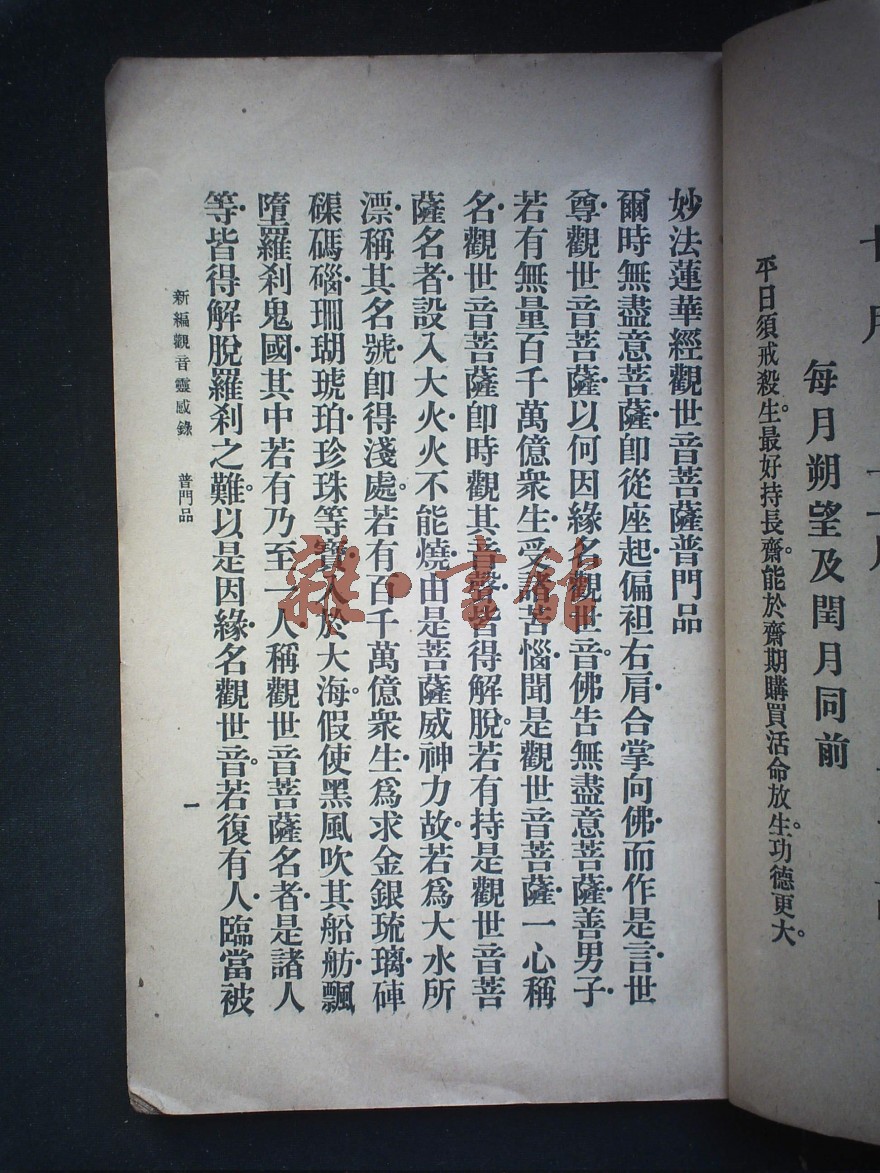 每月朔望及閏月同前
平日須戒殺生。最好持長齋。能於齋期購買活命放生。功德更大。
妙法蓮華經觀世音菩薩普門品
爾時無盡意菩薩。卽從座起。偏袒右肩。合掌向佛。而作是言。世
尊。觀世音菩薩。以何因緣。名觀世音。佛告無盡意菩薩。善男子。
若有無量百千萬億衆生。受諸苦惱。聞是觀世音菩薩。一心稱
名。觀世音菩薩。卽時觀其音聲。皆得解脫。若有持是觀世音菩
薩名者。設入大火。火不能燒。由是菩薩威神力故。若爲大水所
漂。稱其名號。卽得淺處。若有百千萬億衆生。爲求金銀琉璃硨
磲碼碯珊瑚琥珀珍珠等寶。入於大海。假使黑風吹其船舫。飄
墮羅刹鬼國。其中若有乃至一人。稱觀世音菩薩名者。是諸人
等。皆得解脫羅刹之難。以是因緣。名觀世音。若復有人。臨當被
新編觀音靈感錄 普門品
一
雜·書館